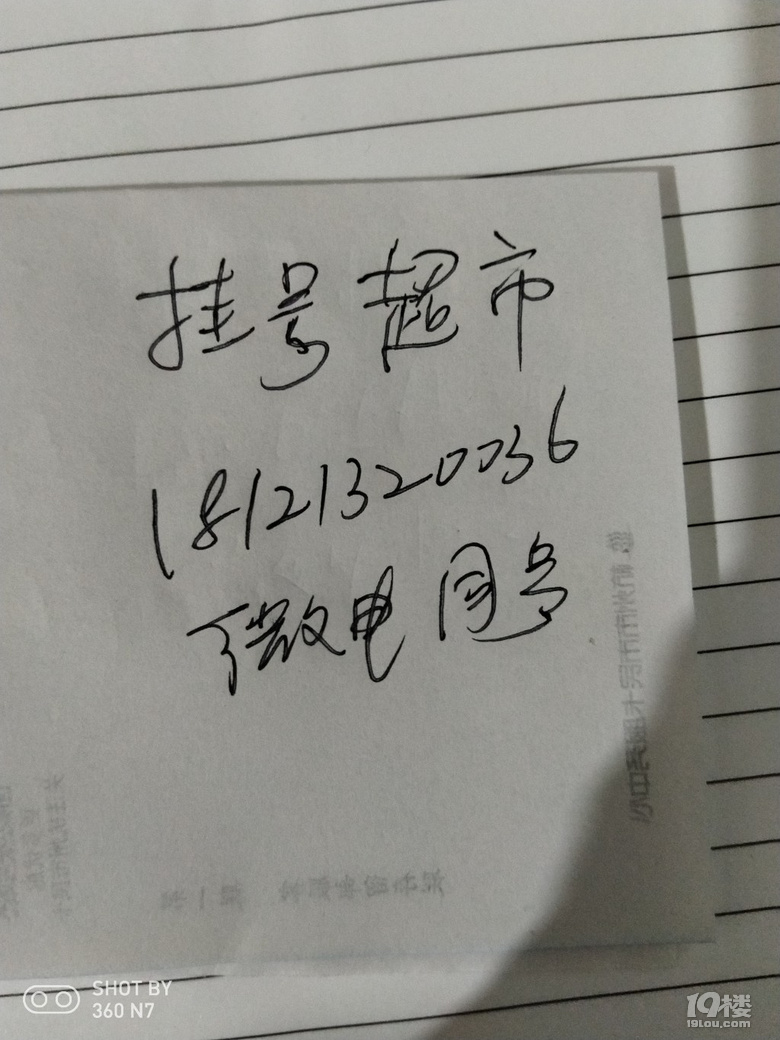 挂号超市
18121320036
微电同号
SHOT BY
360 N7
19楼
19lou.com